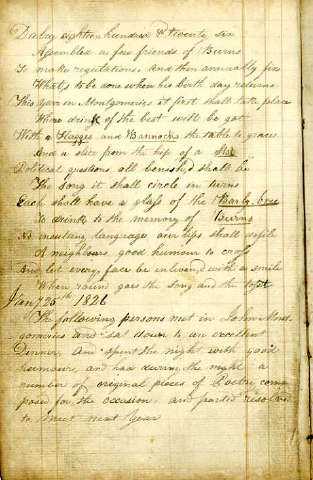 Dalry eighteen hundred & twenty six
Assembled a few friends of Burns
To make regulations. And then annually fix
What's to be done when his birth day returns
This year in Montgomeries it first shall take place
Where drink of the best will be got
With a Haggis and Bannocks the table to grace
And a slice from the hip of a Stot
Political questions all banish'd shall be
The song it shall circle in turns
Each shall have a glass of the Barly bree
To drink to the memory of Burns
No insulting language our lips shall defile
A neighbours, good humour to cross
And let every, face be enliven,d with a smile
When round goes the song and the
Jany 25th 1826
The following persons met in John Mont-
gomeries and sat down to an excellent
Dinner, And spent the night with good
humour, and had during the night a
number of original pieces of Poetry com-
posed for the occasion. and parted resolved
to meet next year